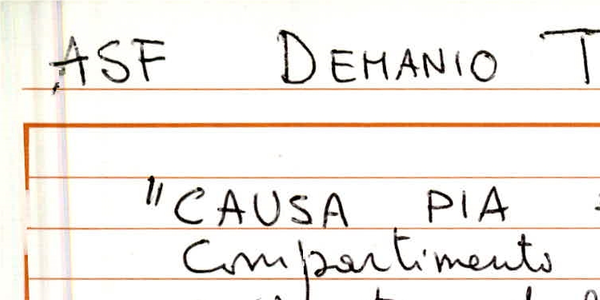 ASF DEMANIO T
"CAUSA PIA
Compartimento